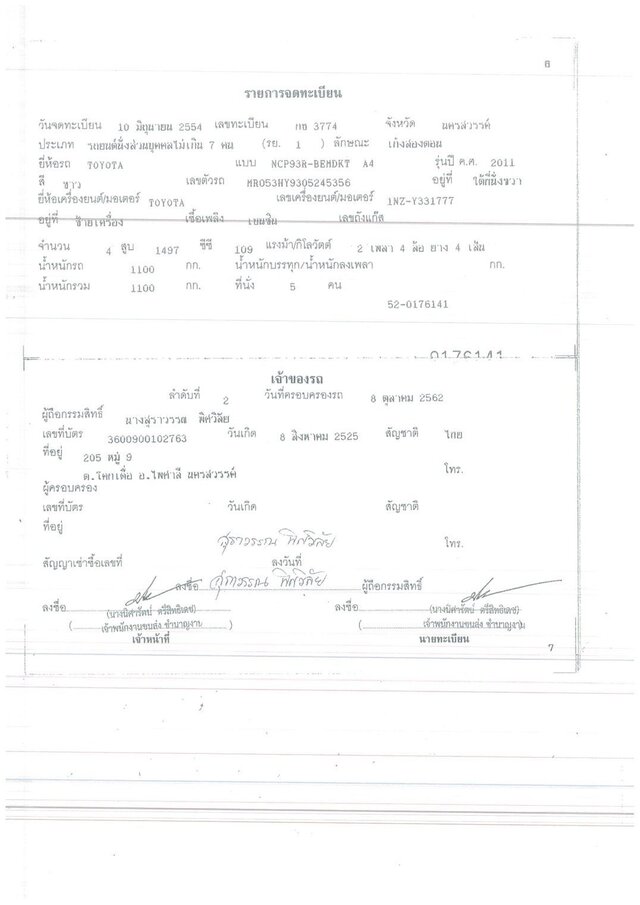 8
รายการจดทะเบียน
วันจดทะเบียน 10 มิถุนายน 2554 เลขทะเบียน กข 3774 จังหวัด นครสวรรค์
ประเภท รถยนต์นั่งส่วนบุคคลไม่เกิน 7 คน (รย. 1 ) ลักษณะ เก๋งสองตอน
ยี่ห้อรถ TOYOTA แบบ NCP93R-BEMDKT A4 รุ่นปี ค.ศ. 2011
สี ขาว เลขตัวรถ MR053HY9305245356 อยู่ที่ ใต้ที่นั่งขวา
ยี่ห้อเครื่องยนต์/มอเตอร์ TOYOTA เลขเครื่องยนต์/มอเตอร์ 1NZ-Y331777
อยู่ที่ ซ้ายเครื่อง เชื้อเพลิง เบนซิน เลขถังแก๊ส
จำนวน 4 สูบ 1497 ซีซี 109 แรงม้า/กิโลวัตต์ 2 เพลา 4 ล้อ ยาง 4 เส้น
น้ำหนักรถ 1100 กก. น้ำหนักบรรทุก/น้ำหนักลงเพลา กก.
น้ำหนักรวม 1100 กก. ที่นั่ง 5 คน
52-0176141
0176141
เจ้าของรถ
ลำดับที่ 2 วันที่ครอบครองรถ 8 ตุลาคม 2562
ผู้ถือกรรมสิทธิ์ นางสุราวรรณ พิศวิลัย
เลขที่บัตร 3600900102763 วันเกิด 8 สิงหาคม 2525 สัญชาติ ไทย
ที่อยู่ 205 หมู่ 9 โทร.
ต.โคกเดื่อ อ.ไพศาลี นครสวรรค์
ผู้ครอบครอง
เลขที่บัตร วันเกิด สัญชาติ
ที่อยู่ โทร.
สุราวรรณ พิศวิลัย
สัญญาเช่าซื้อเลขที่ ลงวันที่
ลงชื่อ สุราวรรณ พิศวิลัย ผู้ถือกรรมสิทธิ์
ลงชื่อ ลงชื่อ
(นางนิศารัตน์ ศรีสิทธิเดช) (นางนิศารัตน์ ศรีสิทธิเดช)
( เจ้าพนักงานขนส่ง ชำนาญงาน ) ( เจ้าพนักงานขนส่ง ชำนาญงาน )
เจ้าหน้าที่ นายทะเบียน
7